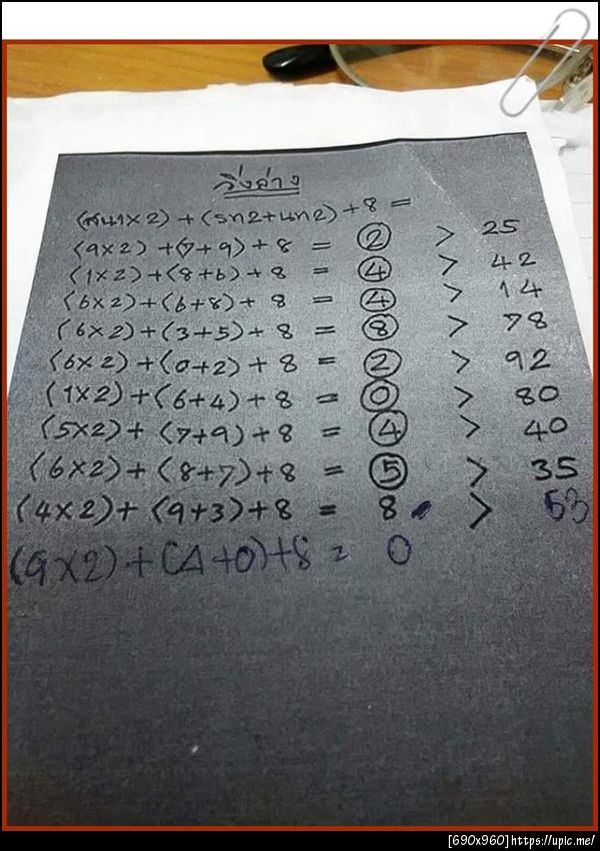 วิ่งล่าง
(สน1×2)+(รท2+นท2)+8=
(9×2)+(7+9)+8 = 2 > 25
(1×2)+(8+6)+8 = 4 > 42
(6×2)+(6+8)+8 = 4 > 14
(6×2)+(3+5)+8 = 8 > 78
(6×2)+(0+2)+8 = 2 > 92
(1×2)+(6+4)+8 = 0 > 80
(5×2)+(7+9)+8 = 4 > 40
(6×2)+(8+7)+8 = 5 > 35
(4×2)+(9+3)+8 = 8 > 53
(9×2)+(4+0)+8 = 0
[690x960]https://upic.me/